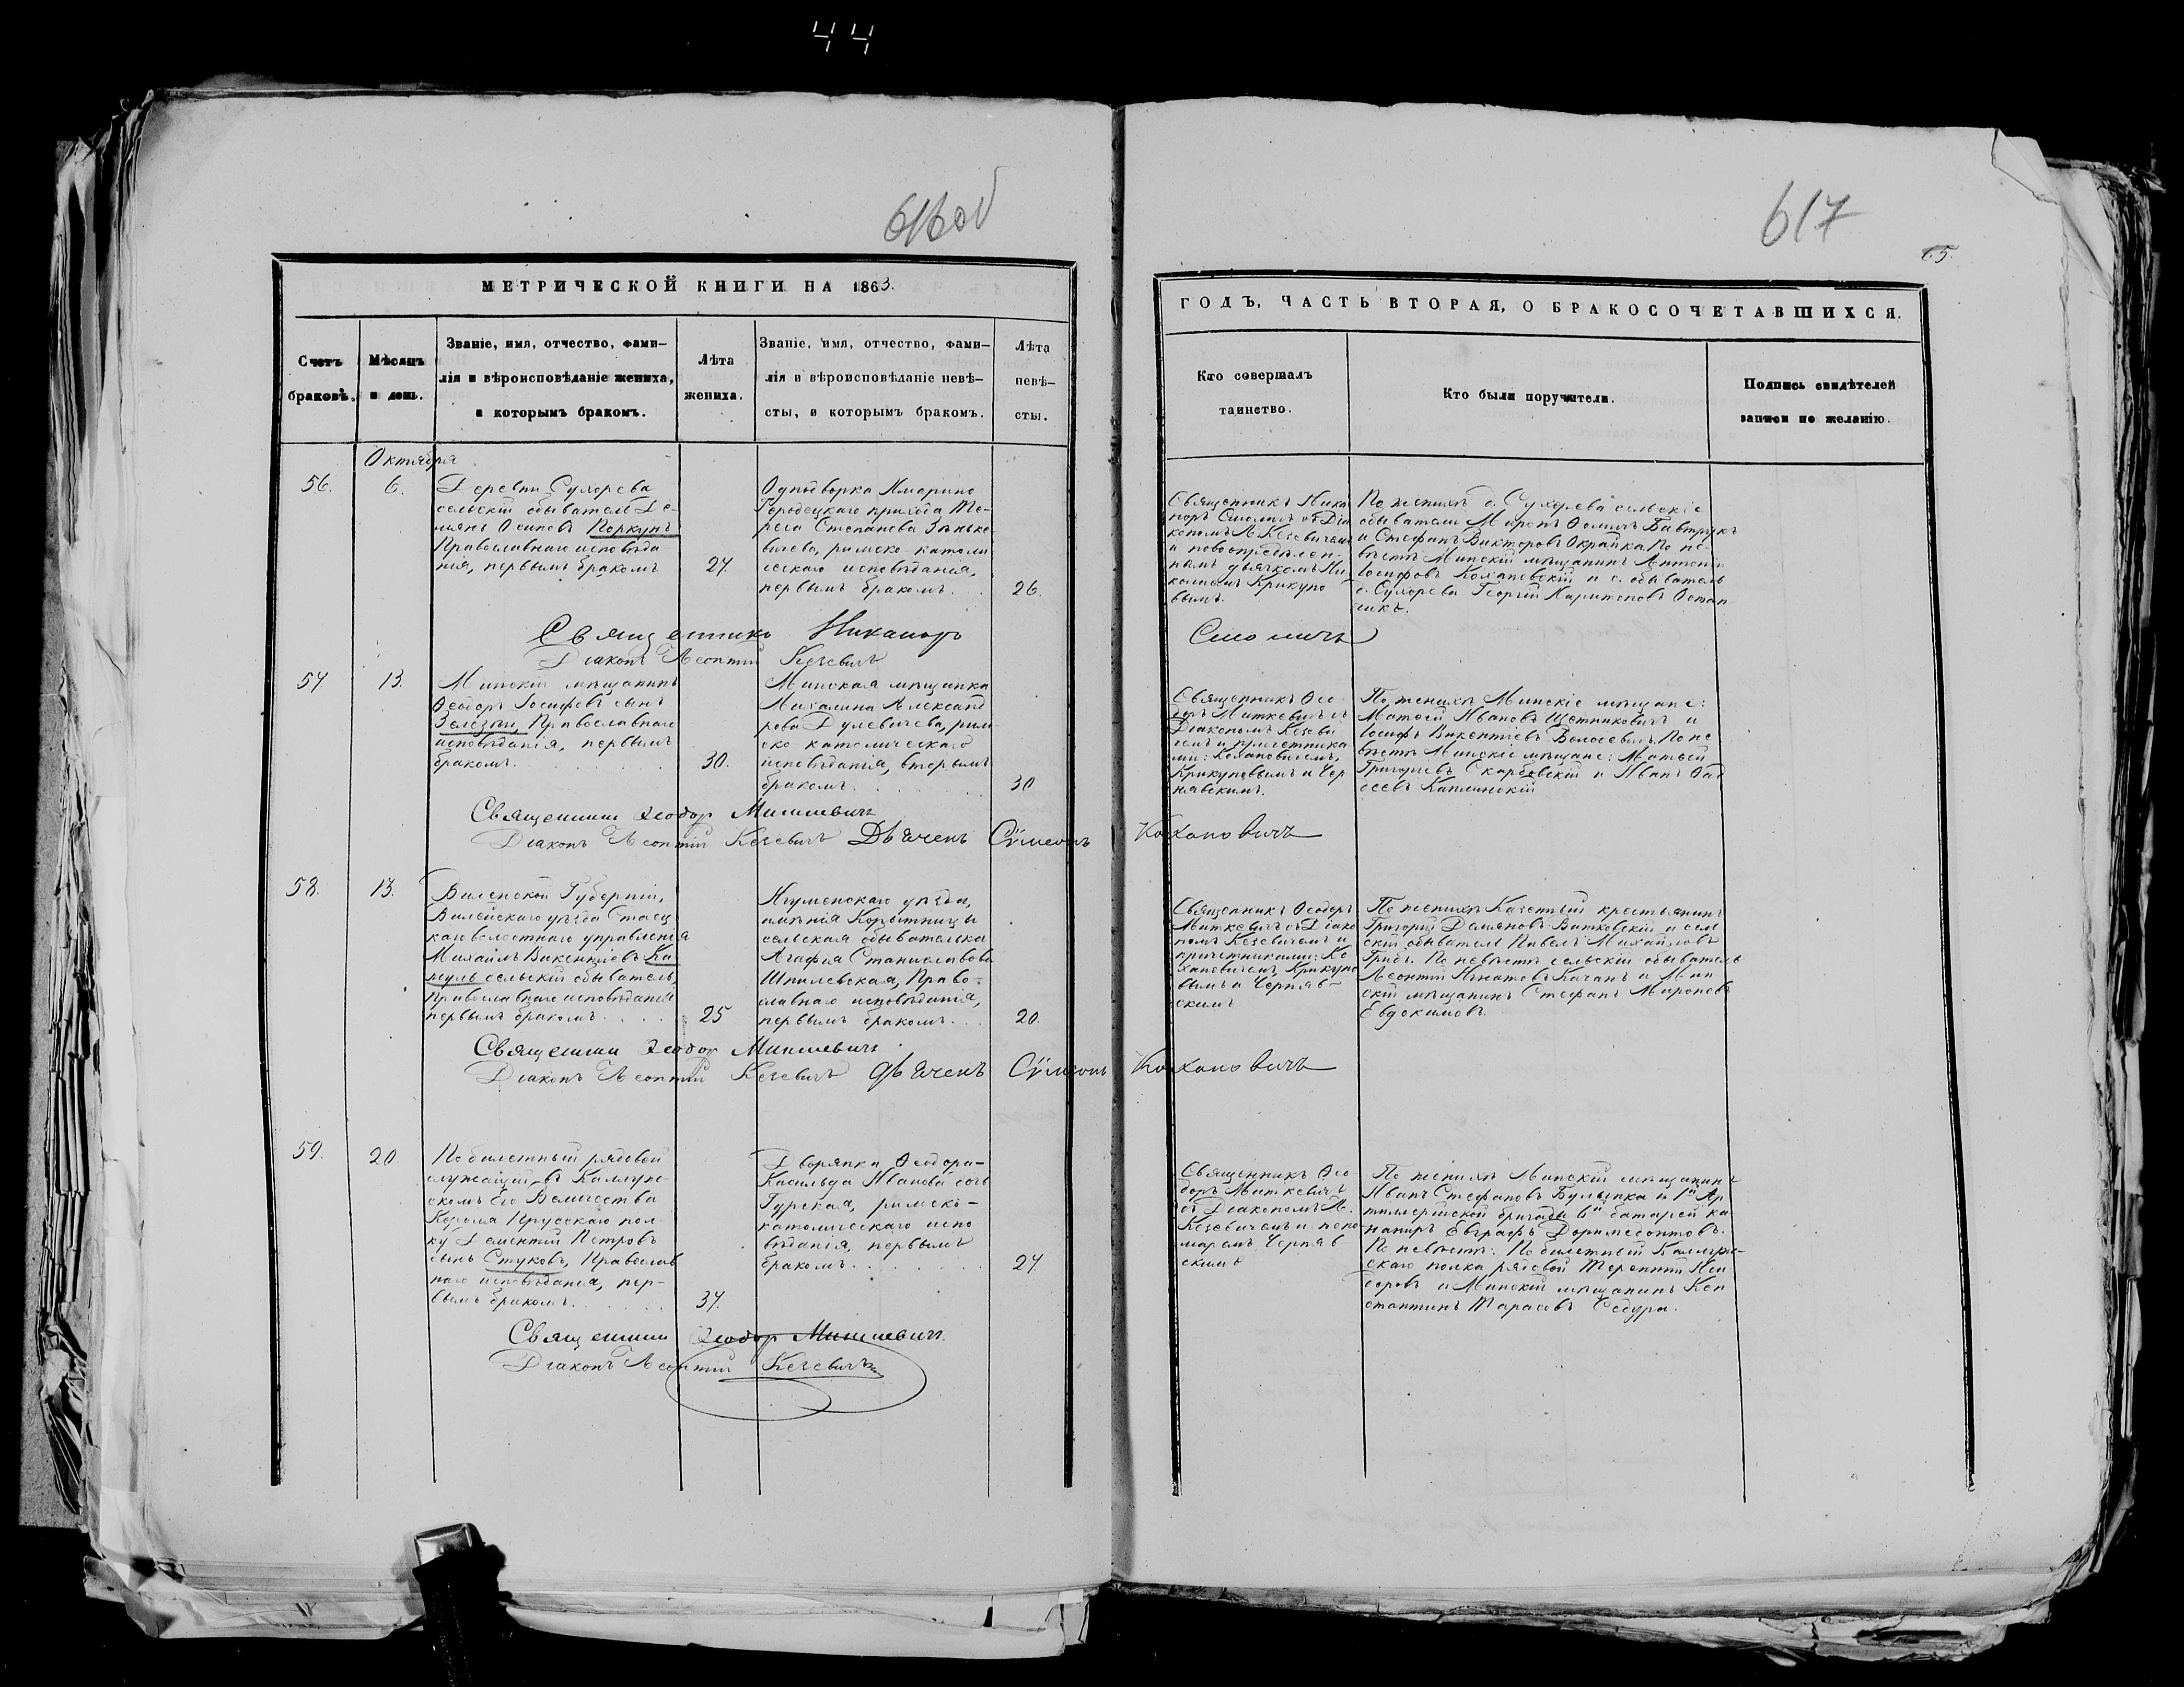 44
616об
617
65.
МЕТРИЧЕСКОЙ КНИГИ НА 1863.
Счетъ
браковъ.
Мѣсяцъ
и день.
Званіе, имя, отчество, фами-
лія и вѣроисповѣданіе жениха,
и которымъ бракомъ.
Лѣта
жениха.
Званіе, имя, отчество, фами-
лія и вѣроисповѣданіе невѣ-
сты, и которымъ бракомъ.
Лѣта
невѣ-
сты.
ГОДЪ, ЧАСТЬ ВТОРАЯ, О БРАКОСОЧЕТАВШИХСЯ.
Кто совершалъ
таинство.
Кто были поручители.
Подпись свидѣтелей
записи по желанію.
Октября
56.
6.
Деревни Сухорева
сельскій обыватель Де-
міянъ Осиповъ Коркунъ
Православнаго исповѣда
нія, первымъ бракомъ
27.
Однодворка Марина
Городецкаго прихода Те-
реса Степанова Зѣнько-
вичева, римско католи
ческаго исповѣданія,
первымъ бракомъ. . .
26.
Священникъ Ника
норъ Смоличъ съ Діа
кономъ Л. Кезевичемъ
и новоопредѣлен-
нымъ дьячкомъ Ни
колаемъ Крикуно
вымъ.
По женихѣ д. Сухорева сельскіе
обыватели Миронъ Ѳоминъ Бавтрукъ
и Стефанъ Викторовъ Окрайка. По не-
вѣстѣ Минскій мѣщанинъ Антонъ
Іосифовъ Кохановскій и с. обыватель
д. Сухорева Георгій Харитоновъ Остап
чикъ.
Священникъ Никаноръ Смоличъ
Діаконъ Леонтій Кезевичъ
57
13.
Минскій мѣщанинъ
Ѳеодоръ Іосифовъ сынъ
Зелезный, Православнаго
исповѣданія, первымъ
бракомъ. . . . . . . .
30.
Минская мѣщанка
Михалина Александ
рова Дулевичева, рим
ско католическаго
исповѣданія, вторымъ
бракомъ. . . . . . .
30
Священникъ Ѳео-
доръ Миткевичъ съ
Діакономъ Кезеви
чемъ и причетника
ми: Кохановичемъ,
Крикуновымъ и Чер
нявскимъ.
По женихѣ Минскіе мѣщане:
Матвѣй Ивановъ Щетниковичъ и
Іосифъ Викентіевъ Волосевичъ. По не
вѣстѣ Минскіе мѣщане: Матвѣй
Григорьевъ Скарбовскій и Иванъ Фад
деевъ Каминскій
Священникъ Ѳеодоръ Миткевичъ
Діаконъ Леонтій Кезевичъ Дьячекъ Сѵмеонъ Кохановичъ
58.
13.
Виленской Губерніи,
Вилейскаго уѣзда Стаец
каго волостнаго управленія
Михаилъ Викентіевъ Ка-
жуль сельскій обыватель,
Православнаго исповѣданія
первымъ бракомъ. . . . .
25
Игуменскаго уѣзда,
имѣнія Корытницы
сельская обывателька
Агафія Станиславова
Шпилевская, Право-
славнаго исповѣданія,
первымъ бракомъ. . .
20.
Священникъ Ѳеодоръ
Миткевичъ съ Діако
номъ Кезевичемъ и
причетниками: Ко
хановичемъ, Крикуно
вымъ и Черняв-
скимъ
По женихѣ Казенный крестьянинъ
Григорій Демяновъ Витковскій и сель
скій обыватель Павелъ Михайловъ
Грибъ. По невѣстѣ сельскій обыватель
Леонтій Игнатовъ Качанъ и Мин
скій мѣщанинъ Стефанъ Мироновъ
Евдокимовъ.
Священникъ Ѳеодоръ Миткевичъ
Діаконъ Леонтій Кезевичъ Дьячекъ Сѵмеонъ Кохановичъ
59.
20.
Побилетный рядовой
служащій въ Калуж-
скомъ Его Величества
Короля Прусскаго пол-
ку Дементій Петровъ
сынъ Стуковъ, Православ
наго исповѣданія, пер-
вымъ бракомъ. . . . . .
37.
Дворянка Ѳеодора-
Касильда Иванова дочь
Гурская, римско-
католическаго испо
вѣданія, первымъ
бракомъ. . . . . . . .
27
Священникъ Ѳео-
доръ Миткевичъ
съ Діакономъ Л.
Кезевичемъ и поно
маремъ Черняв
скимъ
По женихѣ Минскій мѣщанинъ
Иванъ Стефановъ Булынка и 1й Ар
тиллерійской бригады 6й батареи ка
нониръ Евграфъ Доримедонтовъ.
По невѣстѣ: Побилетный Калуж-
скаго полка рядовой Терентій Иси
доровъ и Минскій мѣщанинъ Кон
стантинъ Тарасовъ Седура.
Священникъ Ѳеодоръ Миткевичъ
Діаконъ Леонтій Кезевичъ